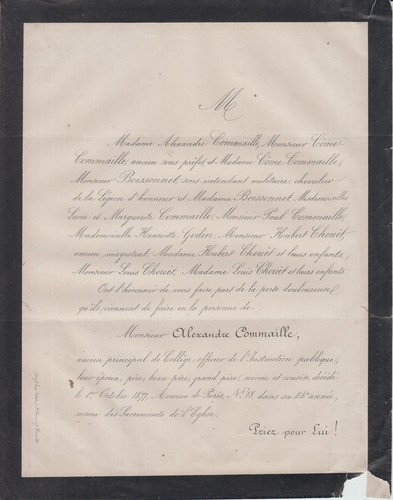 M
Madame Alexandre Commaille, Monsieur Côme
Commaille, ancien sous préfet, et Madame Côme Commaille,
Monsieur Boissonnet, sous intendant militaire, chevalier
de la Légion d'honneur et Madame Boissonnet, Mesdemoiselles
et Marguerite Commaille, Monsieur Paul Commaille,
Mademoiselle Henriette Godin, Monsieur Hubert Chouët
ancien magistrat, Madame Hubert Chouët et leurs enfants,
Monsieur Louis Chouët, Madame Louis Chouët et leurs enfants
Ont l'honneur de vous faire part de la perte douloureuse,
qu'ils viennent de faire en la personne de
Monsieur Alexandre Commaille,
ancien principal de Collège, officier de l'Instruction publique,
leur époux, père, beau-père, grand-père, oncle et cousin, décédé
le 1er Octobre 1877, Avenue de Paris, No 18, dans sa année,
muni des Sacrements de l'Eglise.
Priez pour Lui!